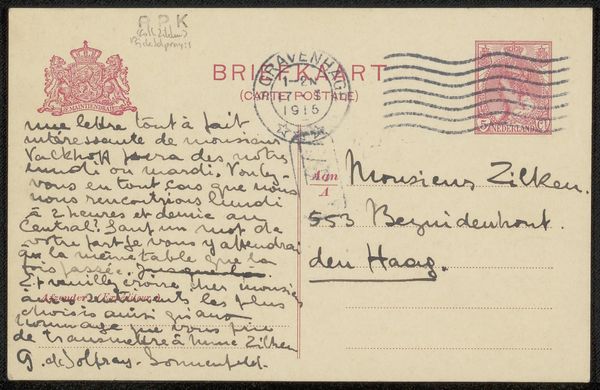 R P K
BRIEFKAART
(CARTE POSTALE)
'S GRAVENHAGE
1-2N
17
1915
JE MAINTIENDRAI
5 NEDERLAND CT
une lettre tout à fait
intéressante de monsieur
Valkhoff sera des nôtres
lundi ou mardi. Voulez-
vous en tout cas que nous
nous rencontrions lundi
à 2 heures et demie au
Central? Sauf un mot de
votre part je vous y attendrai
à la même table que la
fois passée.
Et veuillez croire cher monsieur
à mes sentiments les plus
choisis ainsi qu'aux
hommages que vous prie
de transmettre à Mme Zilken
G. de Solpray-Sonnenfeld.
Afzender (Expéditeur)
Aan
A
Monsieur Zilken.
553 Bezuidenhout.
den Haag.